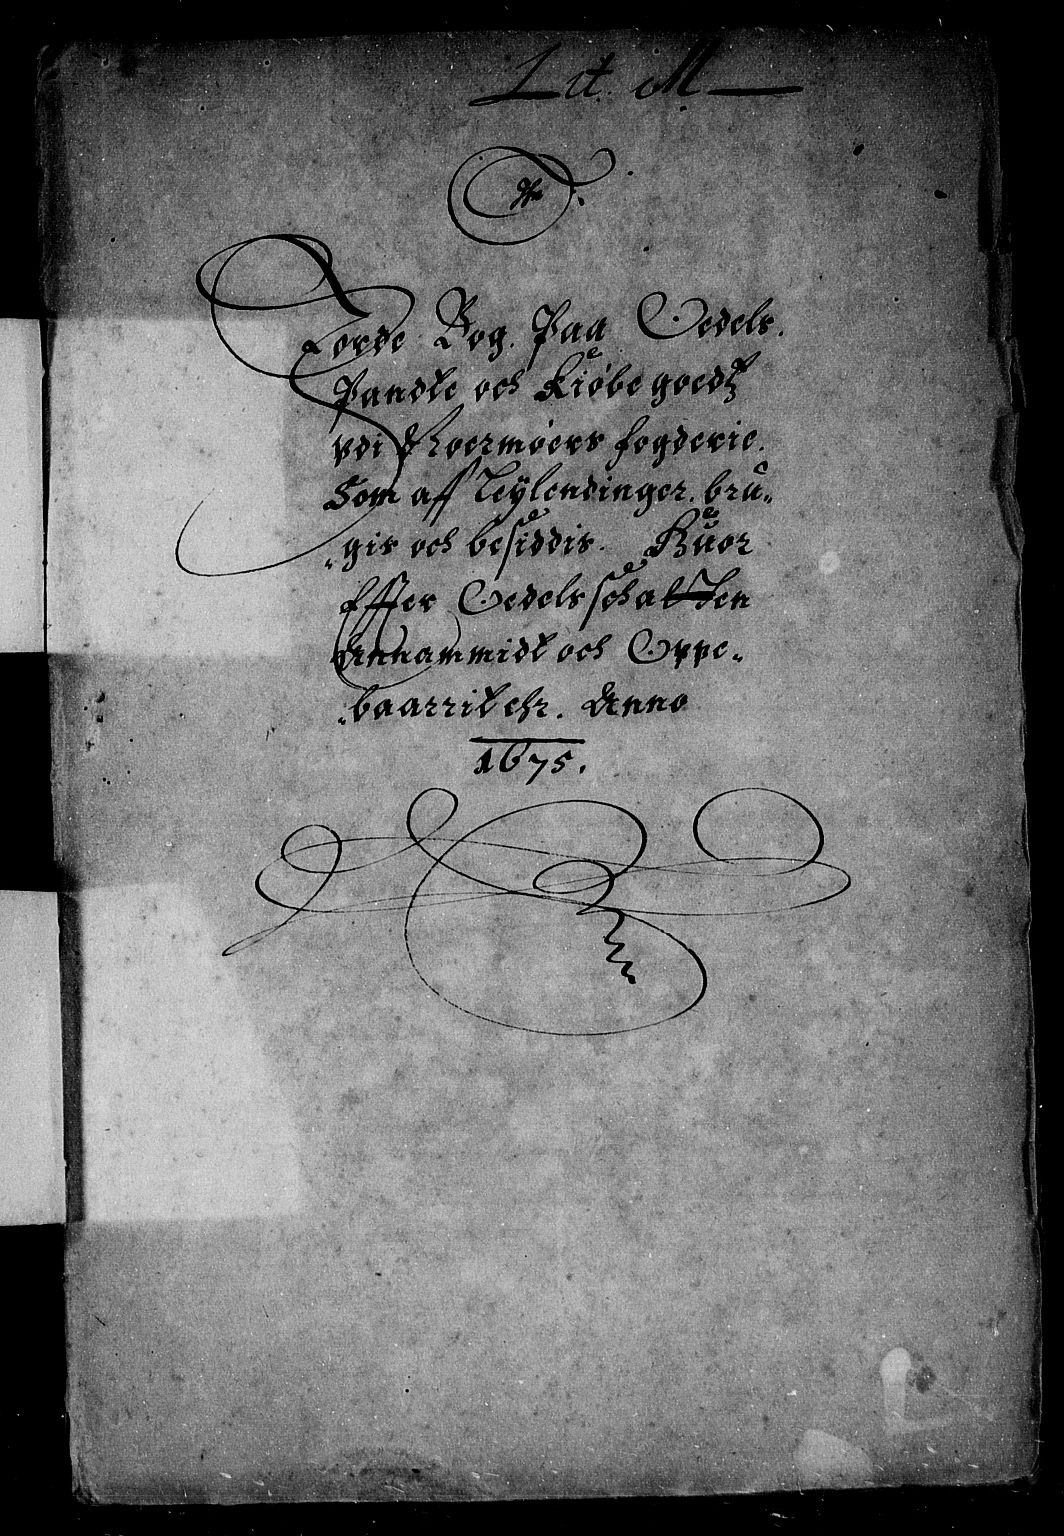 Lit. M
N
Jorde Bog. Paa Oedels.
Pandte och Kiøbe goedtz
vdi Noermøers fogderie.
Som aff Leÿlendinger. brú„
„gis och besiddis. Húor
Effter Oedels schatten
Annammidt och Oppe„
„baarrit ehr. Anno
1675.